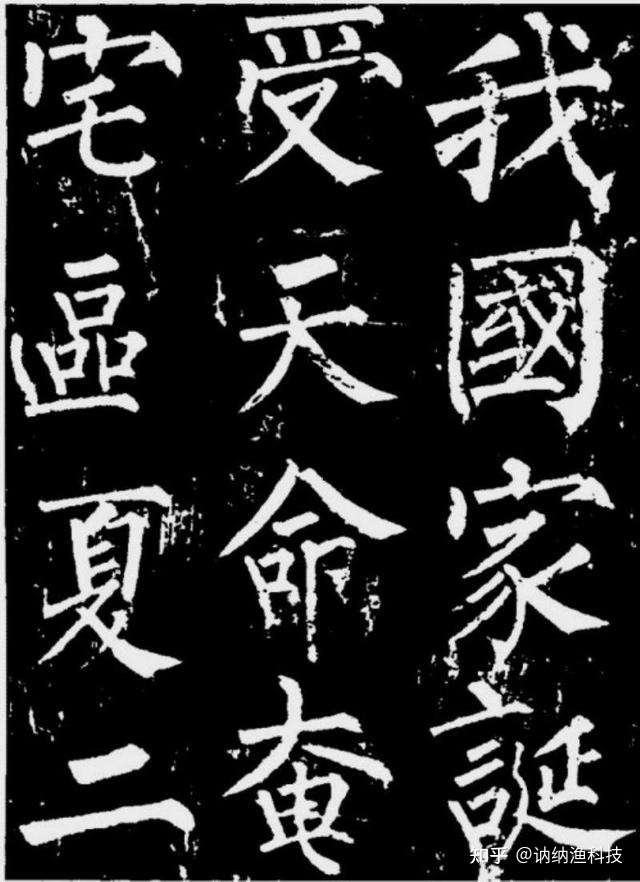 我國家誕
受天命奄
宅區夏二
知乎 @讷纳渔科技